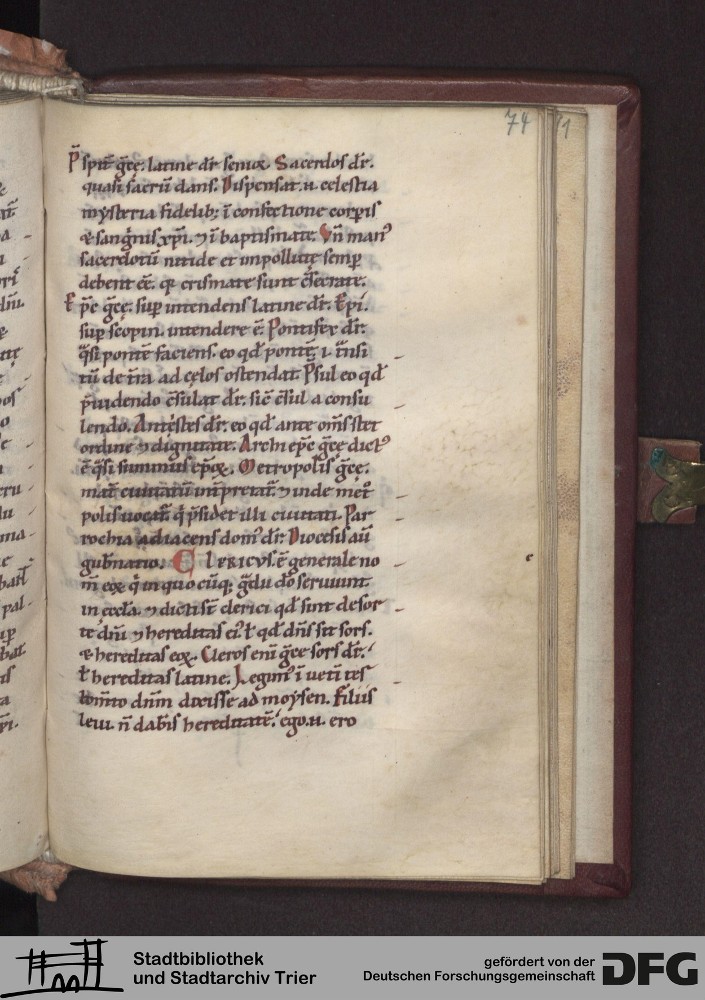 74
P̄spiť g̃ce. latine dr̄ senior. Sacerdos dr̄.
quasi sacrū dans. Dispensat .n. celestia
mysteria fidelib; ī confectione corp̱is
& sangnis xp̄i. ⁊ ī baptismate. Vn̄ man9
sacerdotū nitide et impollutę semp̱
debent eē. q̱ crismate sunt c̄secrate.
Ep̄c g̃ce. sup̱ intendens latine dr̄. Ep̄i.
sup̱ scopin. intendere ē. Pontifex dr̄.
q̄si pontē faciens. eo qd̄ pontē .i. t̄nsi
tū de t̄ra ad cęlos ostendat. P̄sul eo qd̄
p̄uidendo c̄sulat dr̄. sic̄ c̄sul a consu
lendo. Antęstes dr̄. eo qd̄ ante om̄s stet
ordine ⁊ dignitate. Archiep̄c g̃ce dict9
ē q̄si summus ep̄oꝝ. Metropolis g̃ce.
mat̄ ciuitatū int̄pretat̄. ⁊ inde met̄
polis uocat̄. q̄ p̄sidet illi ciuitati. Par
rochia adiacens dom9 dr̄. Diocesis aū
gub̄natio. CLERICVS. ē generale no
m̄ eoꝝ q̄ in quo cūq; g̃du dō seruiunt
in eccl̄a. ⁊ dicti st̄ clerici qd̄ sint de sor
te dn̄i ⁊ hereditas ei9. ł qd̄ dn̄s sit sors.
& hereditas eoꝝ. Cleros eni g̃ce sors dr̄.
ł hereditas latine. Legim9 ī ueti tes
tom̄to dn̄m dixisse ad moysen. Filiis
leui. n̄ dabis hereditatē. ego .n. ero
Stadtbibliothek
und Stadtarchiv Trier
gefördert von der
Deutschen Forschungsgemeinschaft
DFG